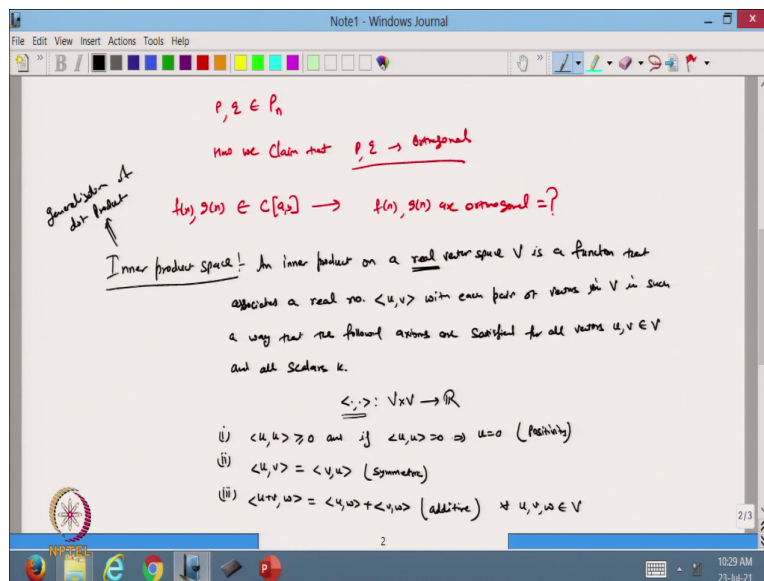 Note1 - Windows Journal
File Edit View Insert Actions Tools Help
P, q ∈ Pn
How we Claim that P, q → orthogonal
generalisation of
dot Product
f(x), g(x) ∈ C[a,b] → f(x), g(x) are orthogonal = ?
Inner product space:- An inner product on a real vector space V is a function that
associates a real no. <u, v> with each pair of vectors in V in such
a way that the following axioms are satisfied for all vectors u, v ∈ V
and all scalars k.
<·,·>: V×V → ℝ
(i) <u,u> ≥ 0 and if <u,u> = 0 ⇒ u=0 (Positivity)
(ii) <u,v> = <v,u> (symmetric)
(iii) <u+v, w> = <u,w> + <v,w> (additive) ∀ u, v, w ∈ V
2/3
2
NPTEL
10:29 AM
23-Jul-21